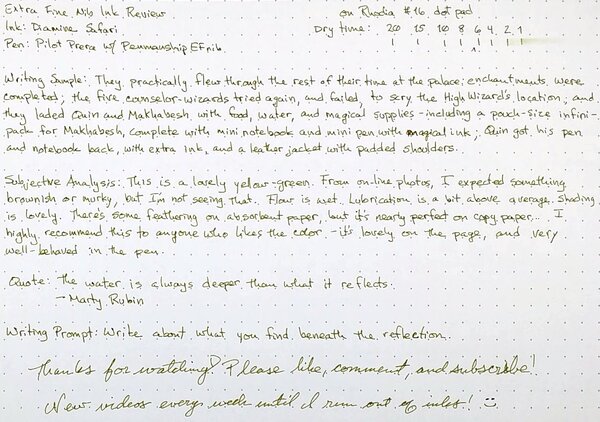 Extra Fine Nib Ink Review
on Rhodia #16 dot pad
Ink: Diamine Safari
Dry time: 20 15 10 8 6 4 2 1
Pen: Pilot Prera w/ Penmanship EF nib.
Writing Sample: They practically flew through the rest of their time at the palace; enchantments were
completed; the five counselor-wizards tried again, and failed, to scry the High Wizard's location; and
they laded Quin and Makhabesh with food, water, and magical supplies - including a pouch-size infini-
pack for Makhabesh, complete with mini notebook and mini pen with magical ink; Quin got his pen
and notebook back, with extra ink, and a leather jacket with padded shoulders.
Subjective Analysis: This is a lovely yellow-green. From on-line photos, I expected something
brownish or murky, but I'm not seeing that. Flow is wet. Lubrication is a bit above average. Shading
is lovely. There's some feathering on absorbent paper, but it's nearly perfect on copy paper... I
highly recommend this to anyone who likes the color - it's lovely on the page, and very
well-behaved in the pen.
Quote: The water is always deeper than what it reflects.
- Marty Rubin
Writing Prompt: Write about what you find beneath the reflection.
Thanks for watching! Please like, comment, and subscribe!
New videos every week until I run out of inks! :)